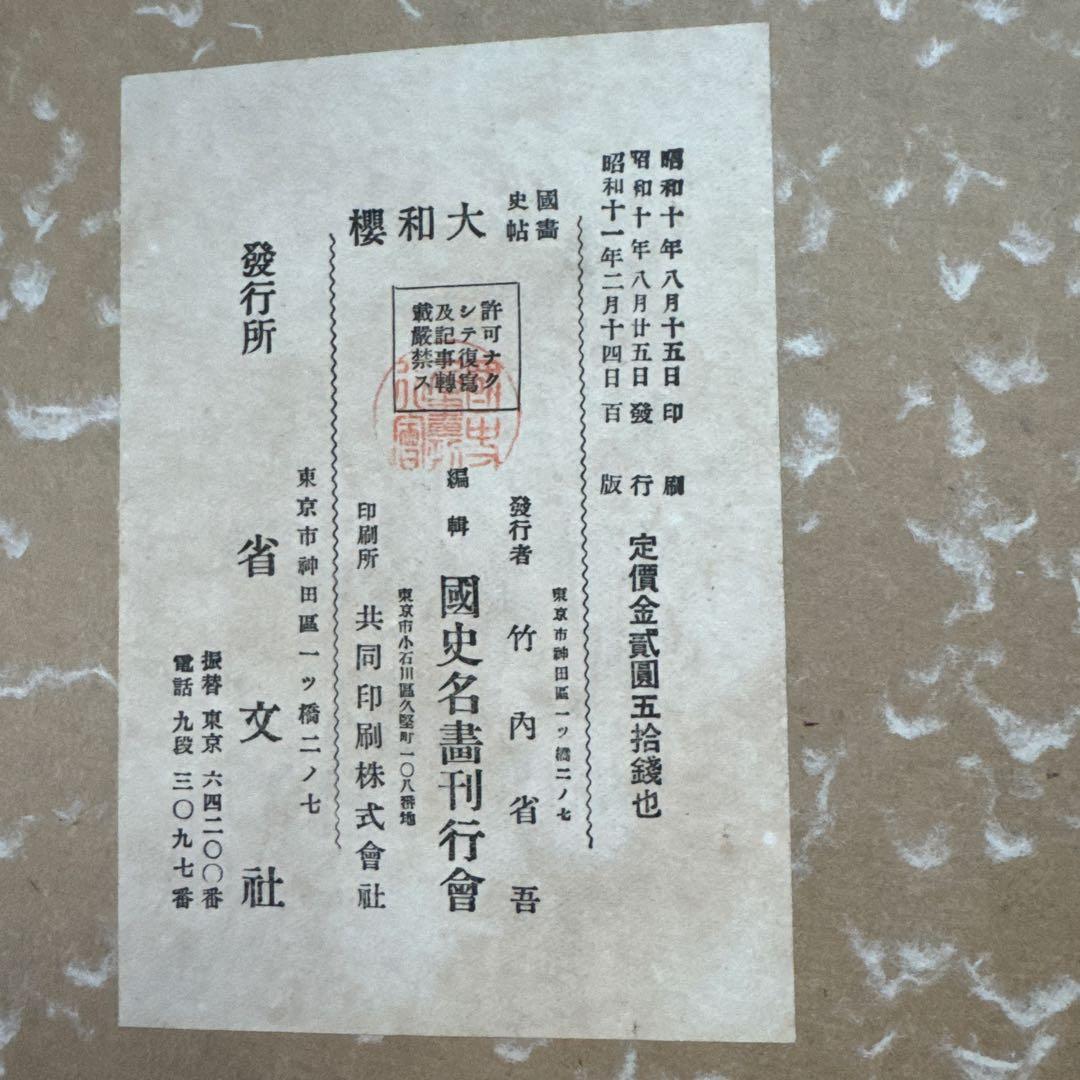 昭和十年八月十五日印刷
昭和十年八月廿五日發行
昭和十一年二月十四日百版
定價金貳圓五拾錢也
國畵
史帖
大和櫻
許可ナク
シテ復寫
及記事轉
載嚴禁ス
東京市神田區一ッ橋二ノ七
發行者 竹內省吾
編輯 國史名畵刊行會
東京市小石川區久堅町一〇八番地
印刷所 共同印刷株式會社
東京市神田區一ッ橋二ノ七
發行所 省文社
振替東京六四二〇〇番
電話九段三〇九七番